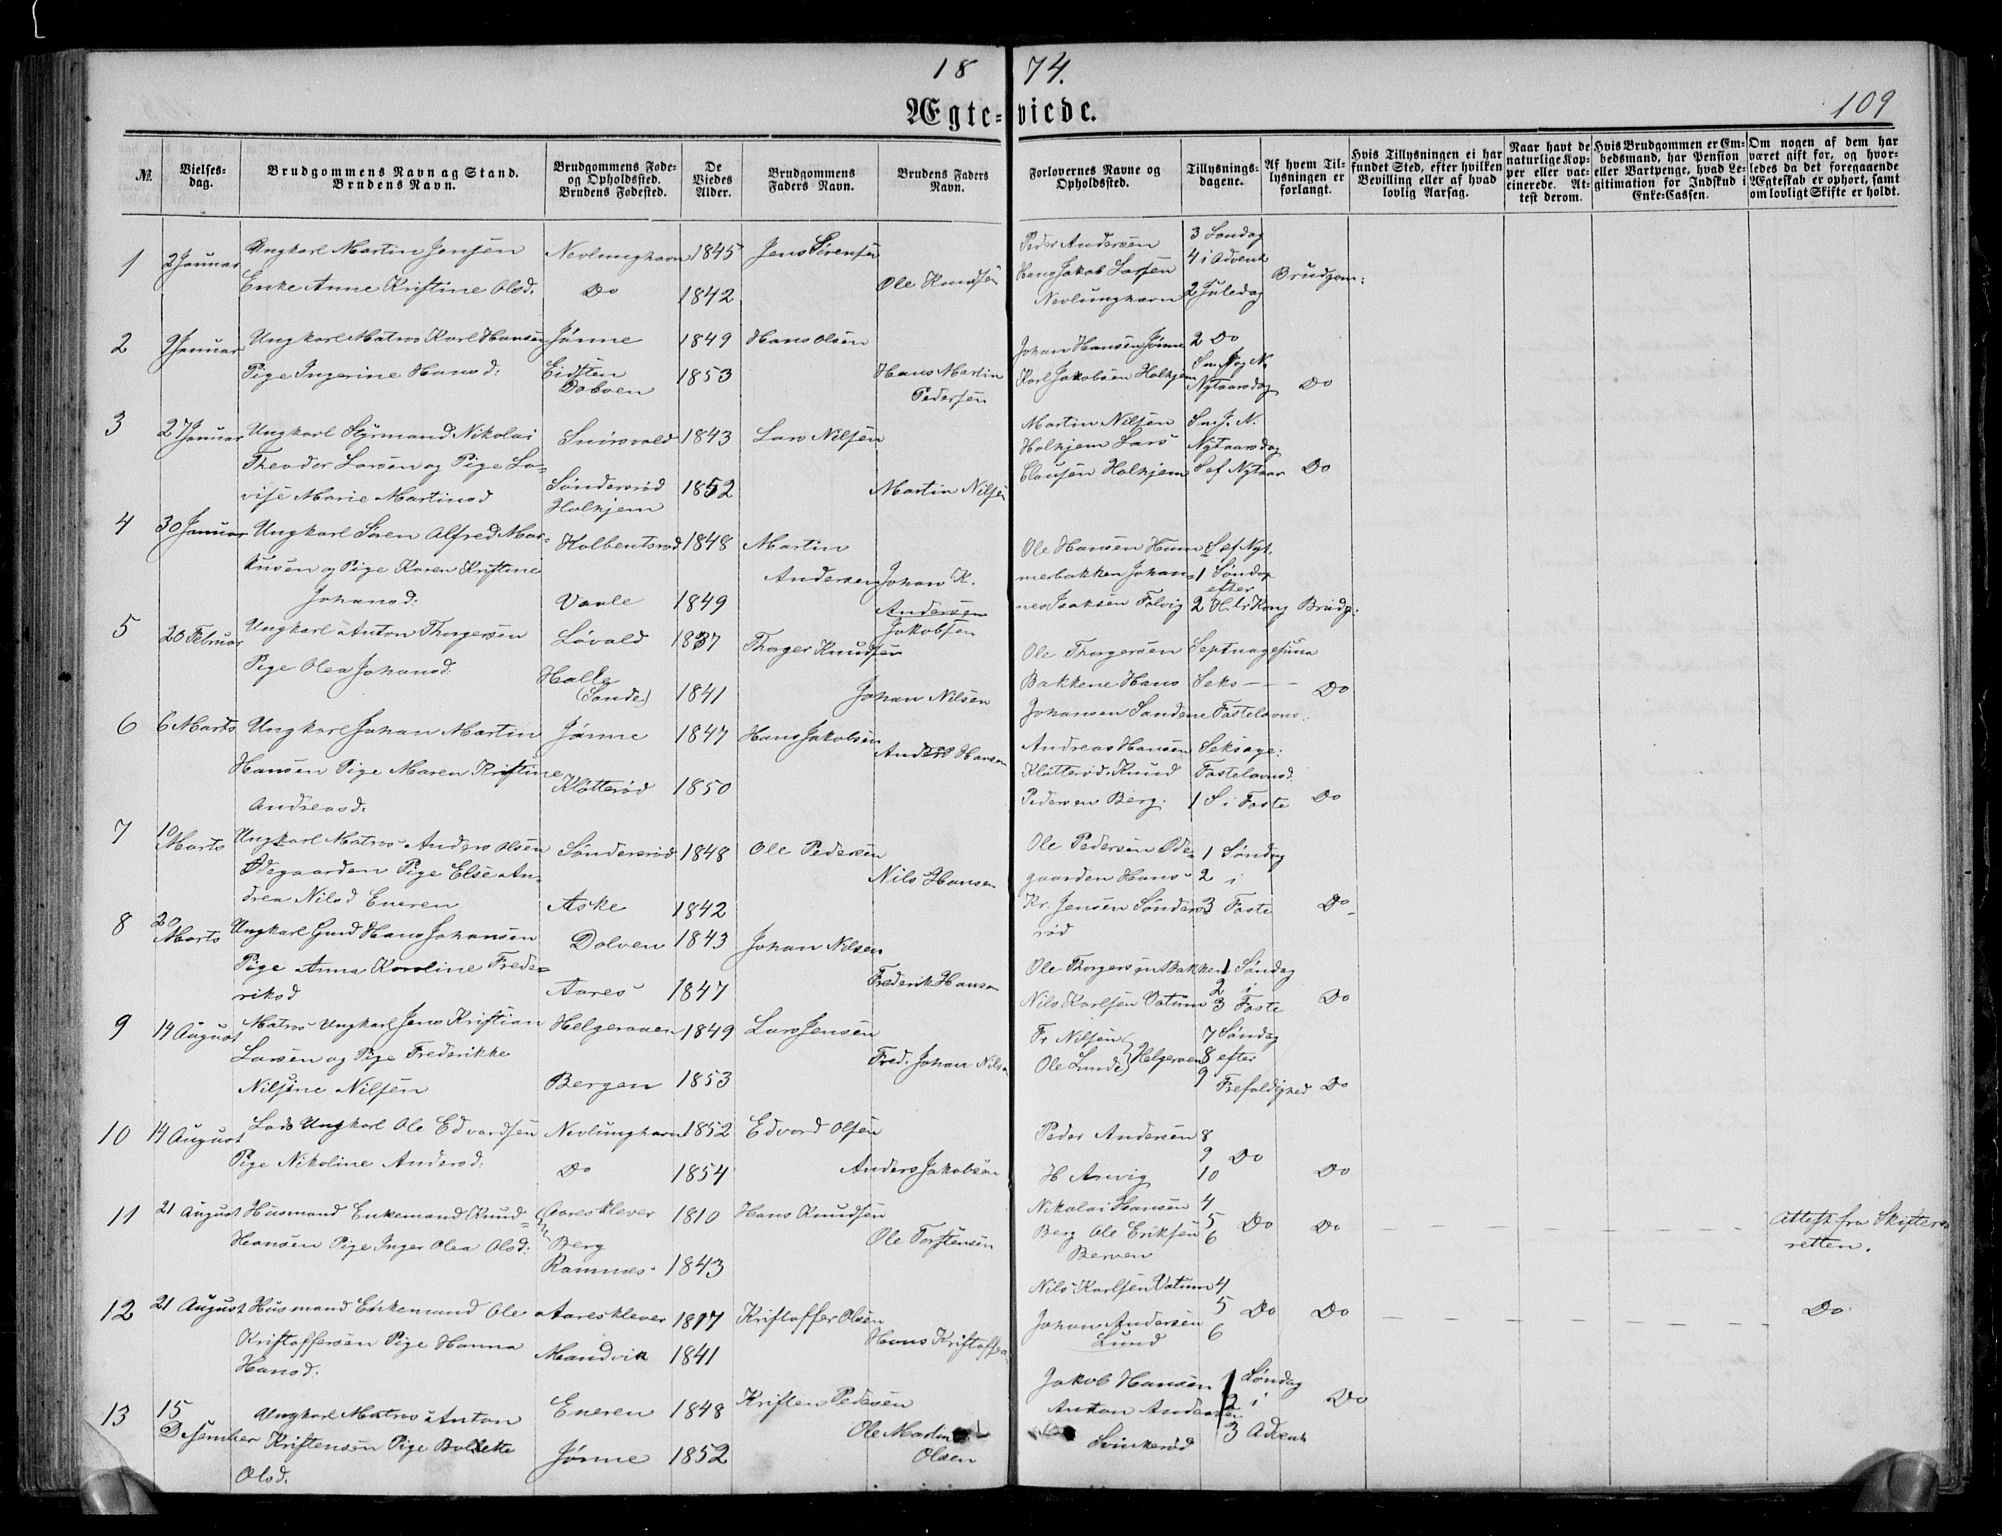 18 74.
109
Ægte-viede.
№.
Vielses-
dag.
Brudgommens Navn og Stand.
Brudens Navn.
Brudgommens Føde-
og Opholdssted.
Brudens Fødested.
De
Viedes
Alder.
Brudgommens
Faders Navn.
Brudens Faders
Navn.
Forlovernes Navne og
Opholdssted.
Tillysnings-
dagene.
Af hvem Til-
lysningen er
forlangt.
Hvis Tillysningen ei har
fundet Sted, efter hvilken
Bevilling eller af hvad
lovlig Aarsag.
Naar havt de
naturlige Kop-
per eller vac-
cinerede. At-
test derom.
Hvis Brudgommen er Em-
bedsmand, har Pension
eller Vartpenge, hvad Le-
gitimation for Indskud i
Enke-Cassen.
Om nogen af dem har
været gift før, og hvor-
ledes da det foregaaende
Ægteskab er ophørt, samt
om lovligt Skifte er holdt.
1 2 Januar Ungkarl Martin Jensen Nevlunghavn 1845 Jens Sørensen
Enke Anne Kristine Olsd. Do 1842 Ole Knudsen
Peder Andersen 3 Søndag
Hans Jakob Larsen 4 i Advent
Nevlunghavn 2 Juledag Brudgom:
2 9 Januar Ungkarl Matros Karl Hansen Jønne 1849 Hans Olsen
Pige Ingerine Hansd: Eidsten 1853 Hans Martin
Dolven Pedersen
Johan Hansen Jønne 2 Do
Karl Jakobsen Holhjem S.m.J og N.
Nytaarsdag Do
3 27 Januar Ungkarl Styrmand Nikolai 1843 Lars Nilsen
Theodor Larsen og Pige Lo-
vise Marie Martinsd Søndersrød 1852 Martin Nilsen
Holhjem
Martin Nilsen S.m.J. N.
Holhjem Lars Nytaarsdag
Clausen Holhjem S ef Nytaar Do
4 30 Januar Ungkarl Søren Alfred Mar- Holbentsrød 1848 Martin
tinsen og Pige Karen Kristine Andersen Johan K.
Johansd: Vaale 1849 Andersen
Jakobsen
Ole Hansen Hum- S ef Nyt.
merbakken Johan- 1 Søndag
efter
nes Isaksen Folvig 2 H.tr Kong Brudg:
5 20 Februar Ungkarl Anton Thorgersen Løvald 1837 Thorger Knudsen
Pige Olea Johansd. Halle
(Sande) 1841 Johan Nilsen
Ole Thorgersen Septuagesima
Bakkene Hans Seks — — Do
Johansen Sandene Fastelavns.
6 6 Marts Ungkarl Johan Martin Jønne 1847 Hans Jakobsen
Hansen Pige Maren Kristine Kløtterød 1850 Anders Hansen
Andreasd.
Andreas Hansen Seksage:
Kløtterød. Knud Fastelavnsd
Pedersen Berg. 1 S i Faste Do
7 10 Marts Ungkarl Matros Anders Olsen Søndersrød 1848 Ole Pedersen
Ødegaarden Pige Else An- Nils Hansen
drea Nilsd Eneren Aske 1842
Ole Pedersen Øde- 1 Søndag
gaarden Hans 2 i
Kr. Jensen Sønders- 3 Faste Do
rød
8 20 Marts Ungkarl Gmd Hans Johansen Dolven 1843 Johan Nilsen
Pige Anna Karoline Frede- Frederik Hansen
riksd Aares 1847
Ole Thorgersen Bakken 1 Søndag
2 i
Nils Karlsen Vatum 3 Faste Do
9 14 August Matros Ungkarl Jens Kristian Helgeraaen 1849 Lars Jensen
Larsen og Pige Frederikke Fred. Johan Nilsen
Nilsine Nilsen Bergen 1853
Fr. Nilsen 7 Søndag
Ole Lunde Helgeraaen 8 efter
9 Trefoldighed Do
10 14 August Lods Ungkarl Ole Edvardsen Nevlunghavn 1852 Edvard Olsen
Pige Nikoline Andersd: Do 1854 Anders Jakobsen
Peder Andersen 8
9 Do
H Anvig 10 Do
11 21 August Husmand Enkemand Knud Aaresklever 1810 Hans Knudsen
Hansen Pige Inger Olea Olsd: Berg Ole Torstensen
Ramnes 1843
Nikolai Hansen 4
Berg Ole Eriksen 5 Do Do
Berven 6
Attest fra Skifte-
retten.
12 21 August Husmand Enkemand Ole Aaresklever 1817 Kristoffer Olsen
Kristoffersen Pige Hanna Mandvik 1841 Hans Kristoffersen
Hansd.
Nils Karlsen Vatum 4
Johan Andersen 5 Do Do Do
Lund 6
13 15 Desember Ungkarl Matros Anton Eneren 1848 Kristen Pedersen
Kristensen Pige Bolette Jønne 1852 Ole Martin
Olsd. Olsen
Jakob Hansen 1 Søndag
Anton Andersen 2 i Do
3 Advent